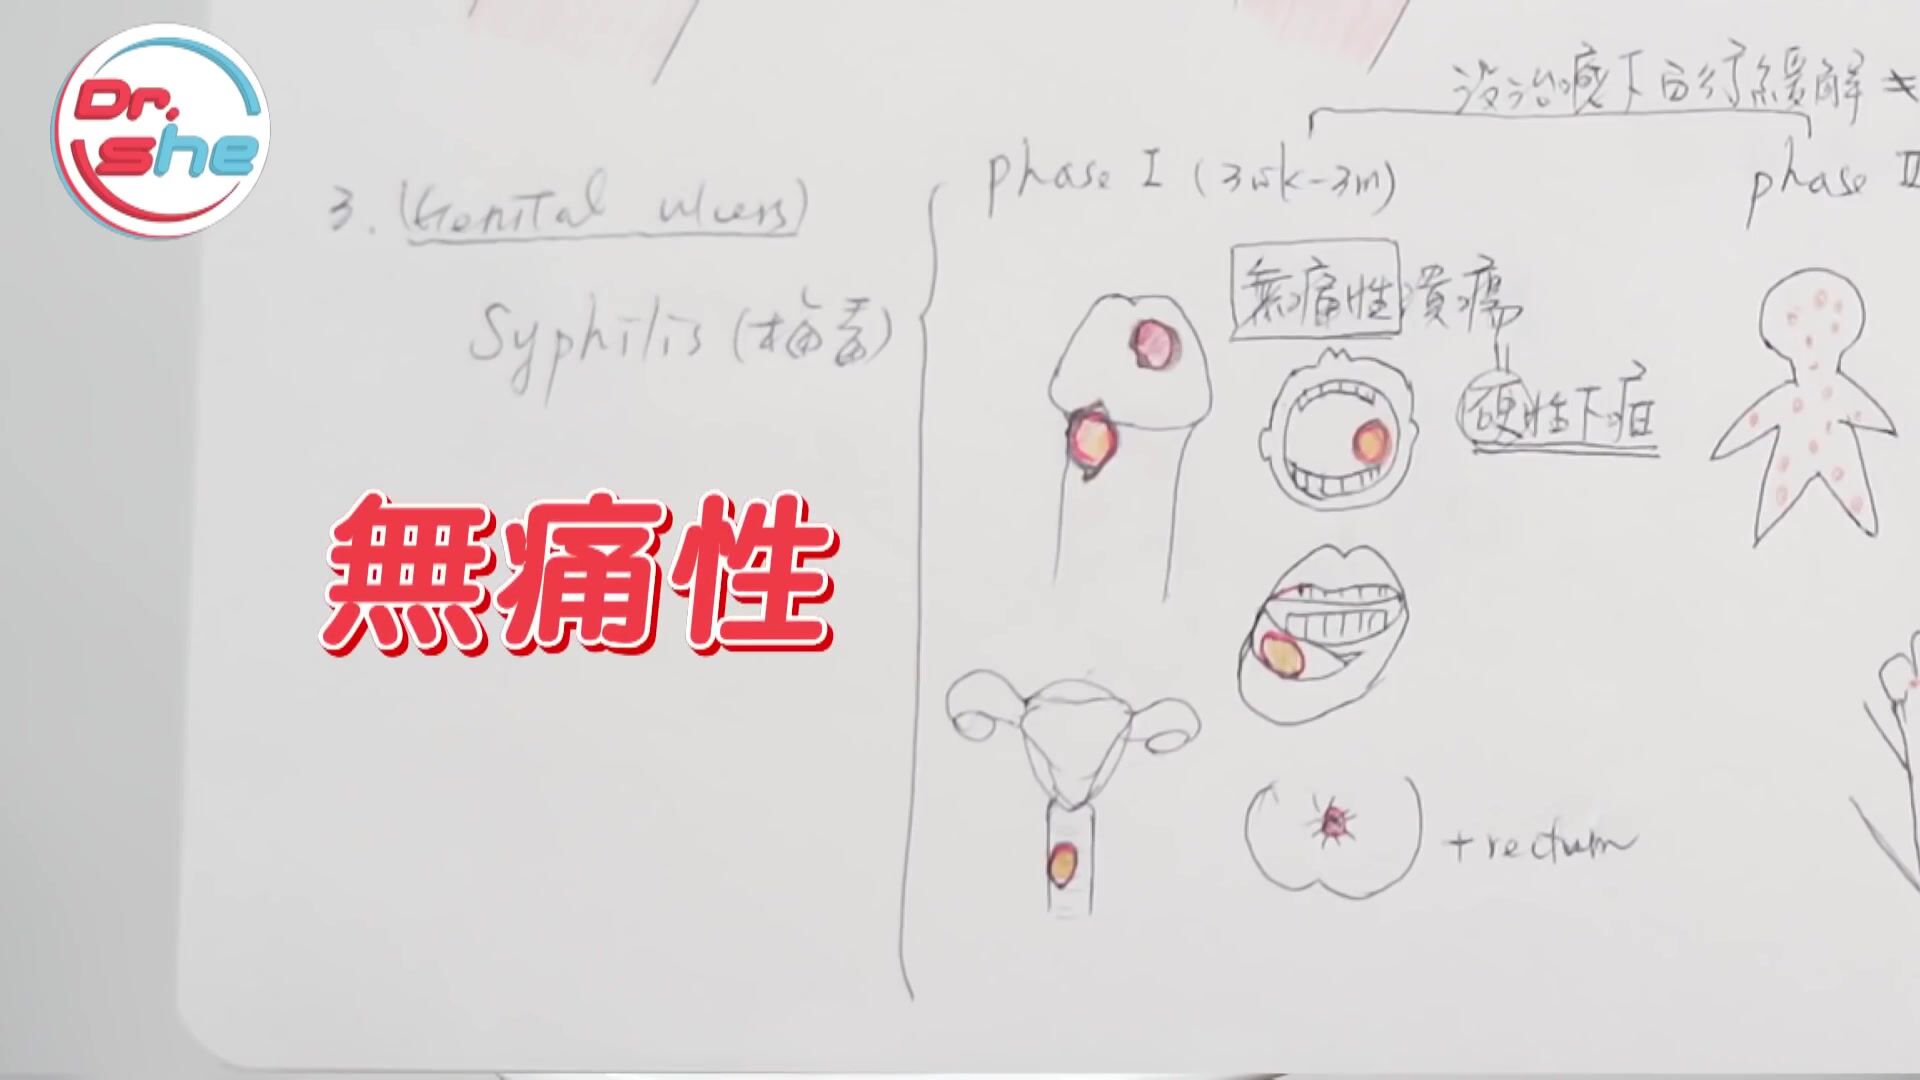 Dr.
she
没治療下自行緩解
phase I (3wk-3m)
phase II
3. (Genital ulcers)
Syphilis (梅毒)
無痛性潰瘍
硬性下疳
無痛性
+ rectum